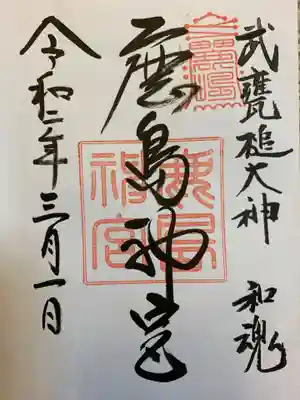 武甕槌大神 和魂
鹿島神宮
令和二年三月一日
鹿島
神宮